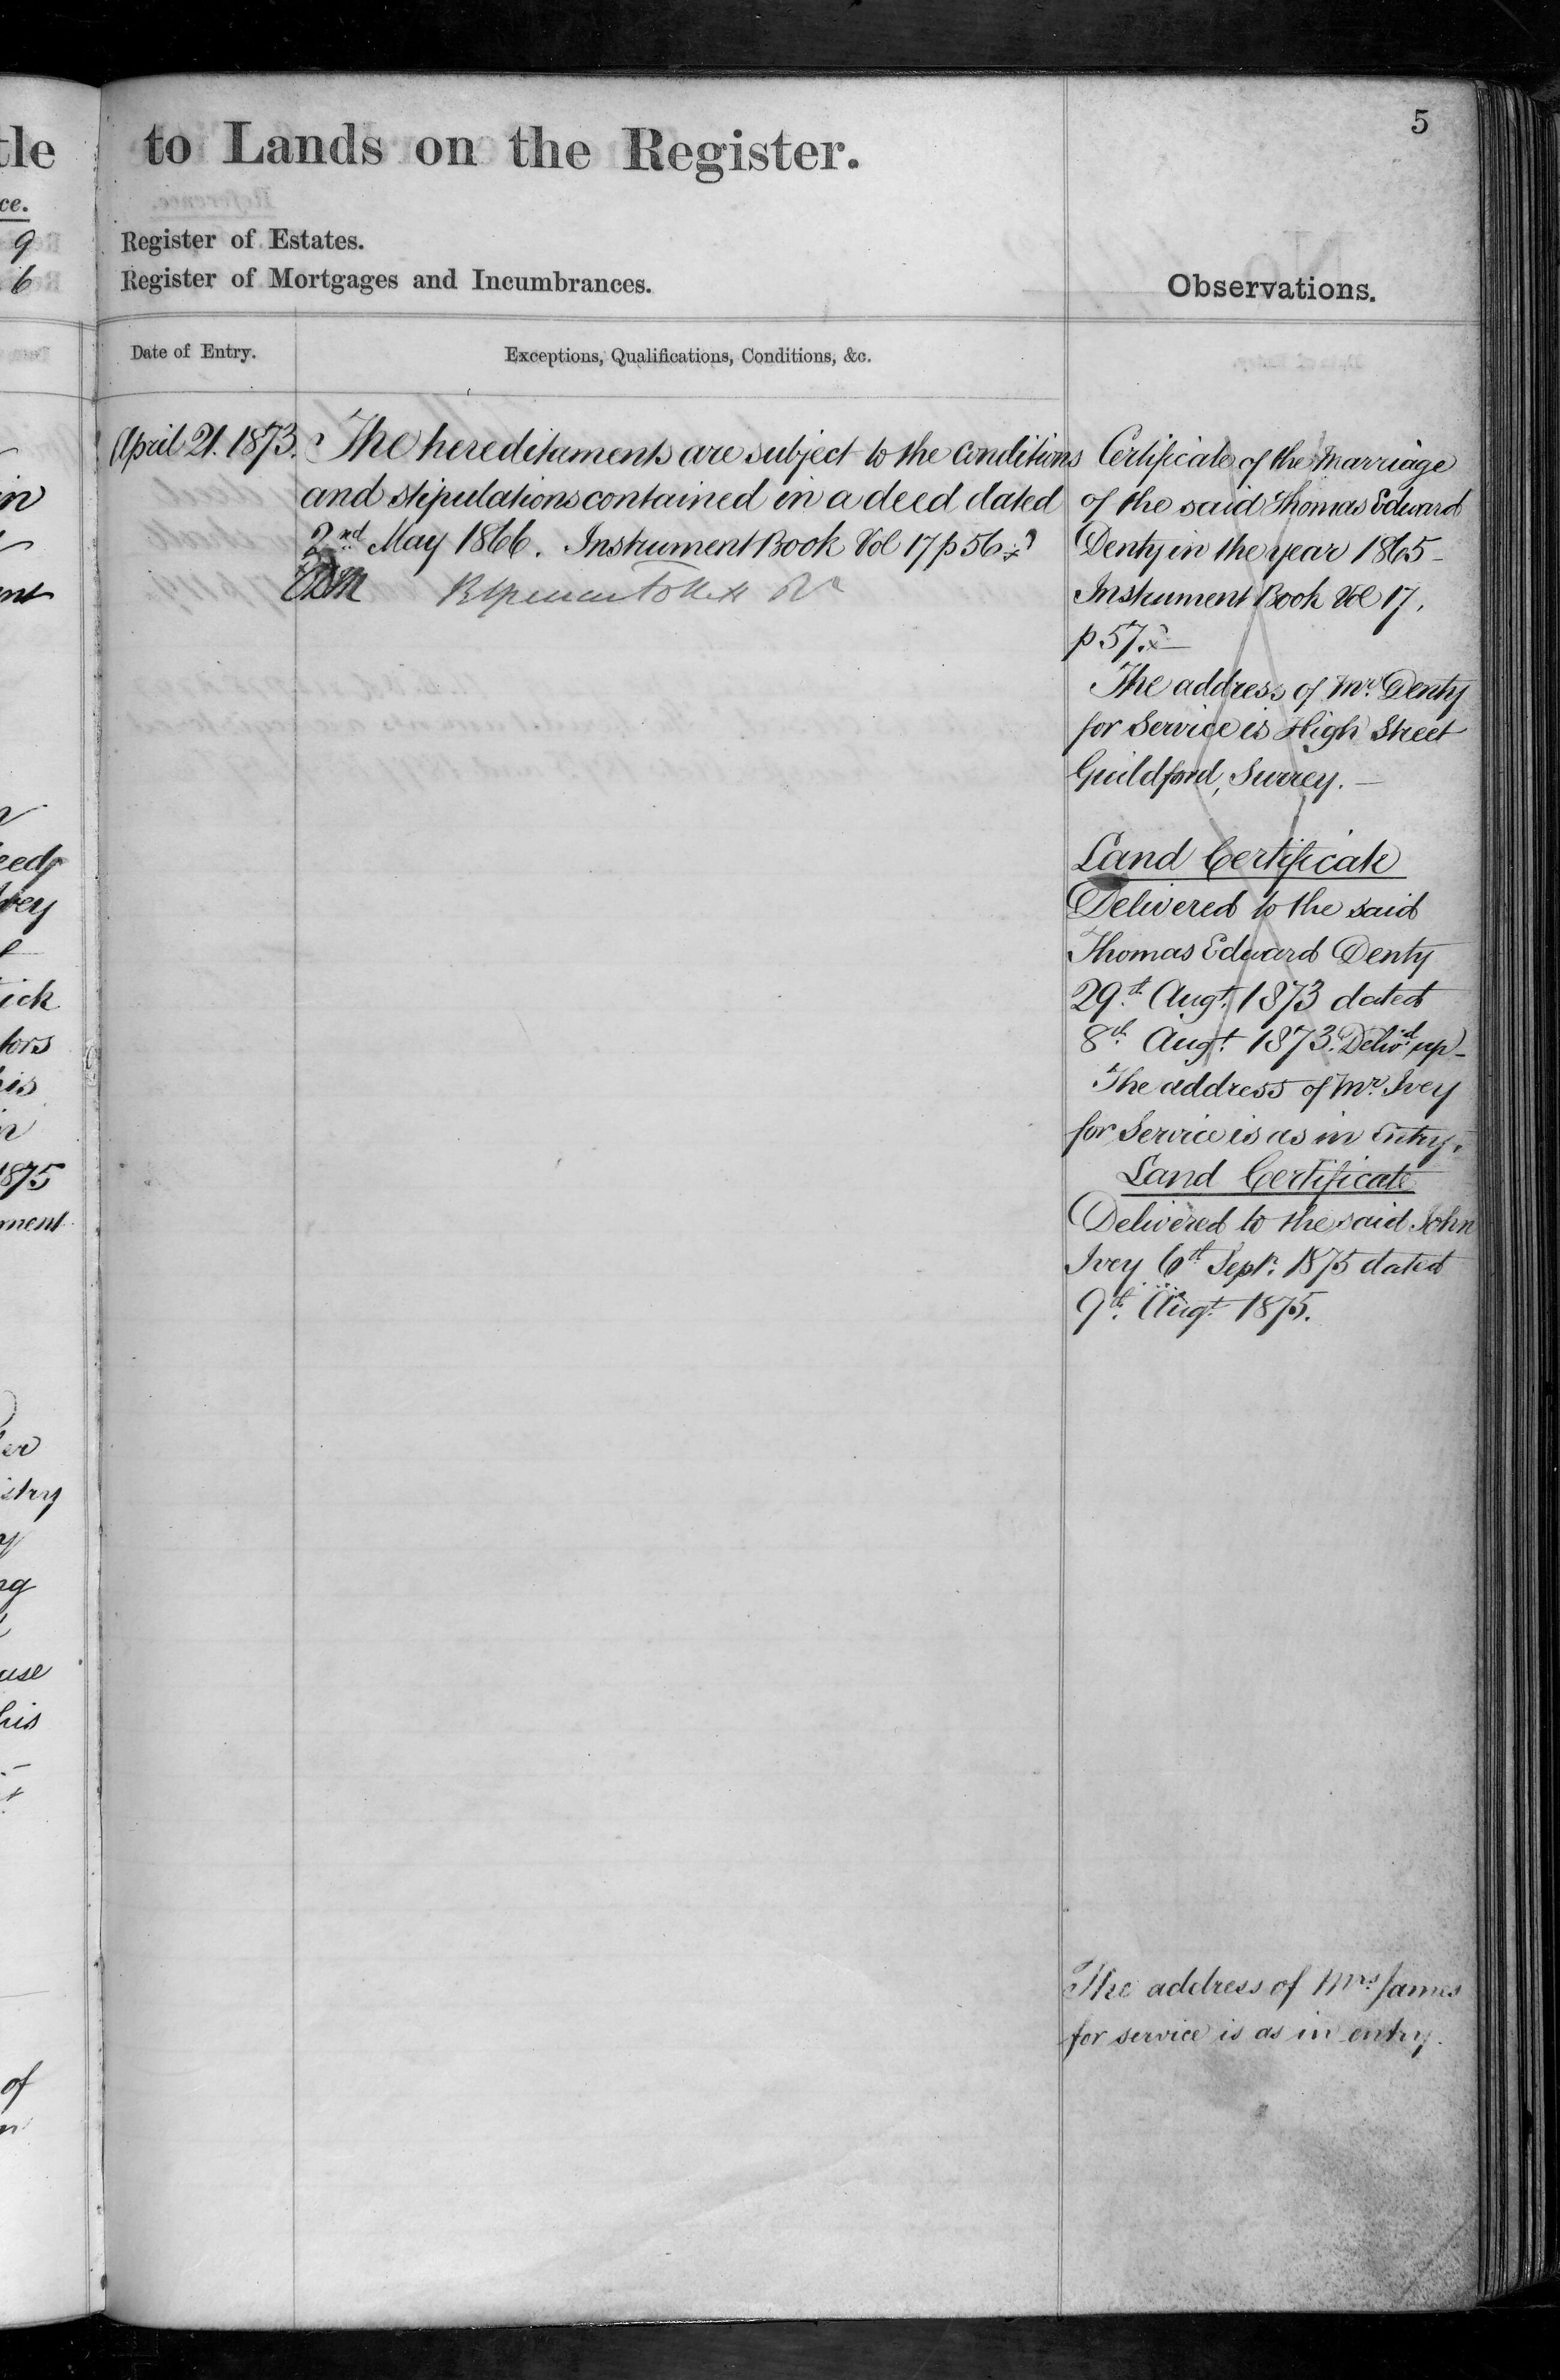 5
to Lands on the Register.
Register of Estates.
Register of Mortgages and Incumbrances.
Observations.
Date of Entry.
Exceptions, Qualifications, Conditions, &c.
April 21. 1873.
The hereditaments are subject to the conditions
and stipulations contained in a deed dated
2nd May 1866. Instrument Book Vol 17 p 56
Certificate of the Marriage
of the said Thomas Edward
Denty in the year 1865 -
Instrument Book Vol 17.
p 57.
The address of Mr. Denty
for Service is High Street
Guildford, Surrey. -
Land Certificate
Delivered to the said
Thomas Edward Denty
29th Augt. 1873 dated
8th Augt. 1873. Delivd. up -
The address of Mr. Ivey
for Service is as in Entry.
Land Certificate
Delivered to the said John
Ivey 6th Septr. 1875 dated
9th Augt. 1875.
The address of Mrs. James
for service is as in entry.
tle
ce.
9
6
in
ick
tors
his
1875
ment
istry
his
of